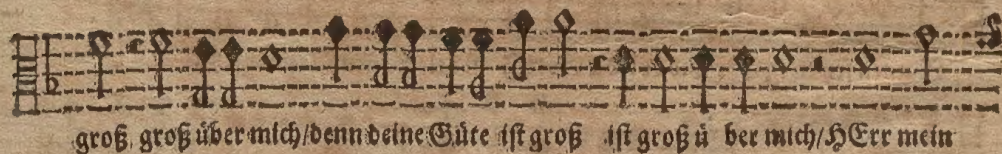 groß groß über mich/denn deine Güte ist groß ist groß ü ber mich/HErr mein